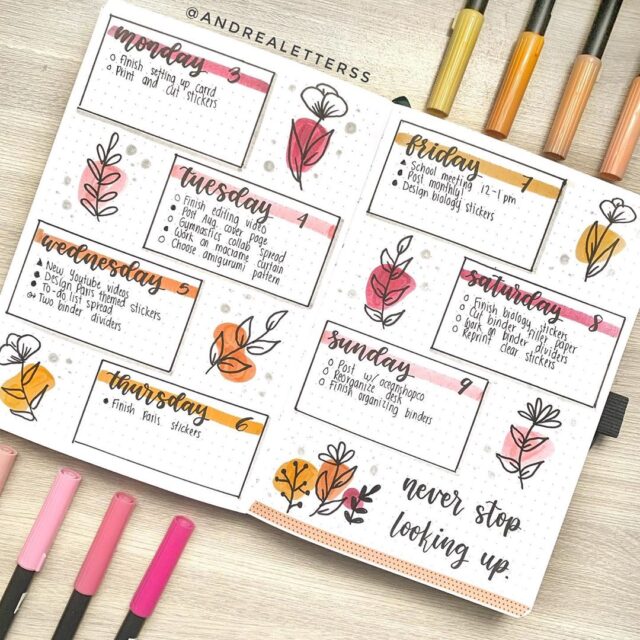 @ANDREALETTERSS
monday 3
Finish setting up Carrd
Print and cut stickers
tuesday 4
Finish editing video
Post Aug. cover page
Gymnastics collab spread
Work on macrame curtain
Choose amigurumi pattern
wednesday 5
New Youtube videos
Design Paris themed stickers
To-do list spread
Two binder dividers
thursday 6
Finish Paris stickers
friday 7
School meeting 12-1 pm
Post monthly!
Design biology stickers
saturday 8
Finish biology stickers
Cut binder filler paper
Work on binder dividers
Reprint clear stickers
sunday 9
Post w/ oceanshopco
Reorganize desk
Finish organizing binders
never stop
looking up.